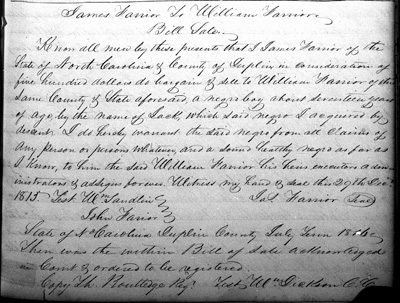 James Farrior To William Farrior
Bill Sale.
Know all men by these presents that I James Farrior of the
State of North Carolina & County of Duplin in consideration of
five hundred dollars do bargain & sell to William Farrior of the
Same County & State aforesaid a negro boy about seventeen years
of age, by the name of Jack, which said negro I acquired by
descent. I do hereby warrant the said negro from all Claims of
any person or persons whatever, and a sound healthy negro as far as
I Know, to him the said William Farrior his heirs executors admi
nistrators & assigns forever. Witness my hand & seal this 29th Dec.
1815. Test W. Sandlin Jas Farrior Seal
John Farrior
State of No Carolina Duplin County July Term 1816
Then was the within Bill of sale acknowledged
in Court & ordered to be registered.
Copy Th. Routledge Regr. Test Wm Dickson C.C.